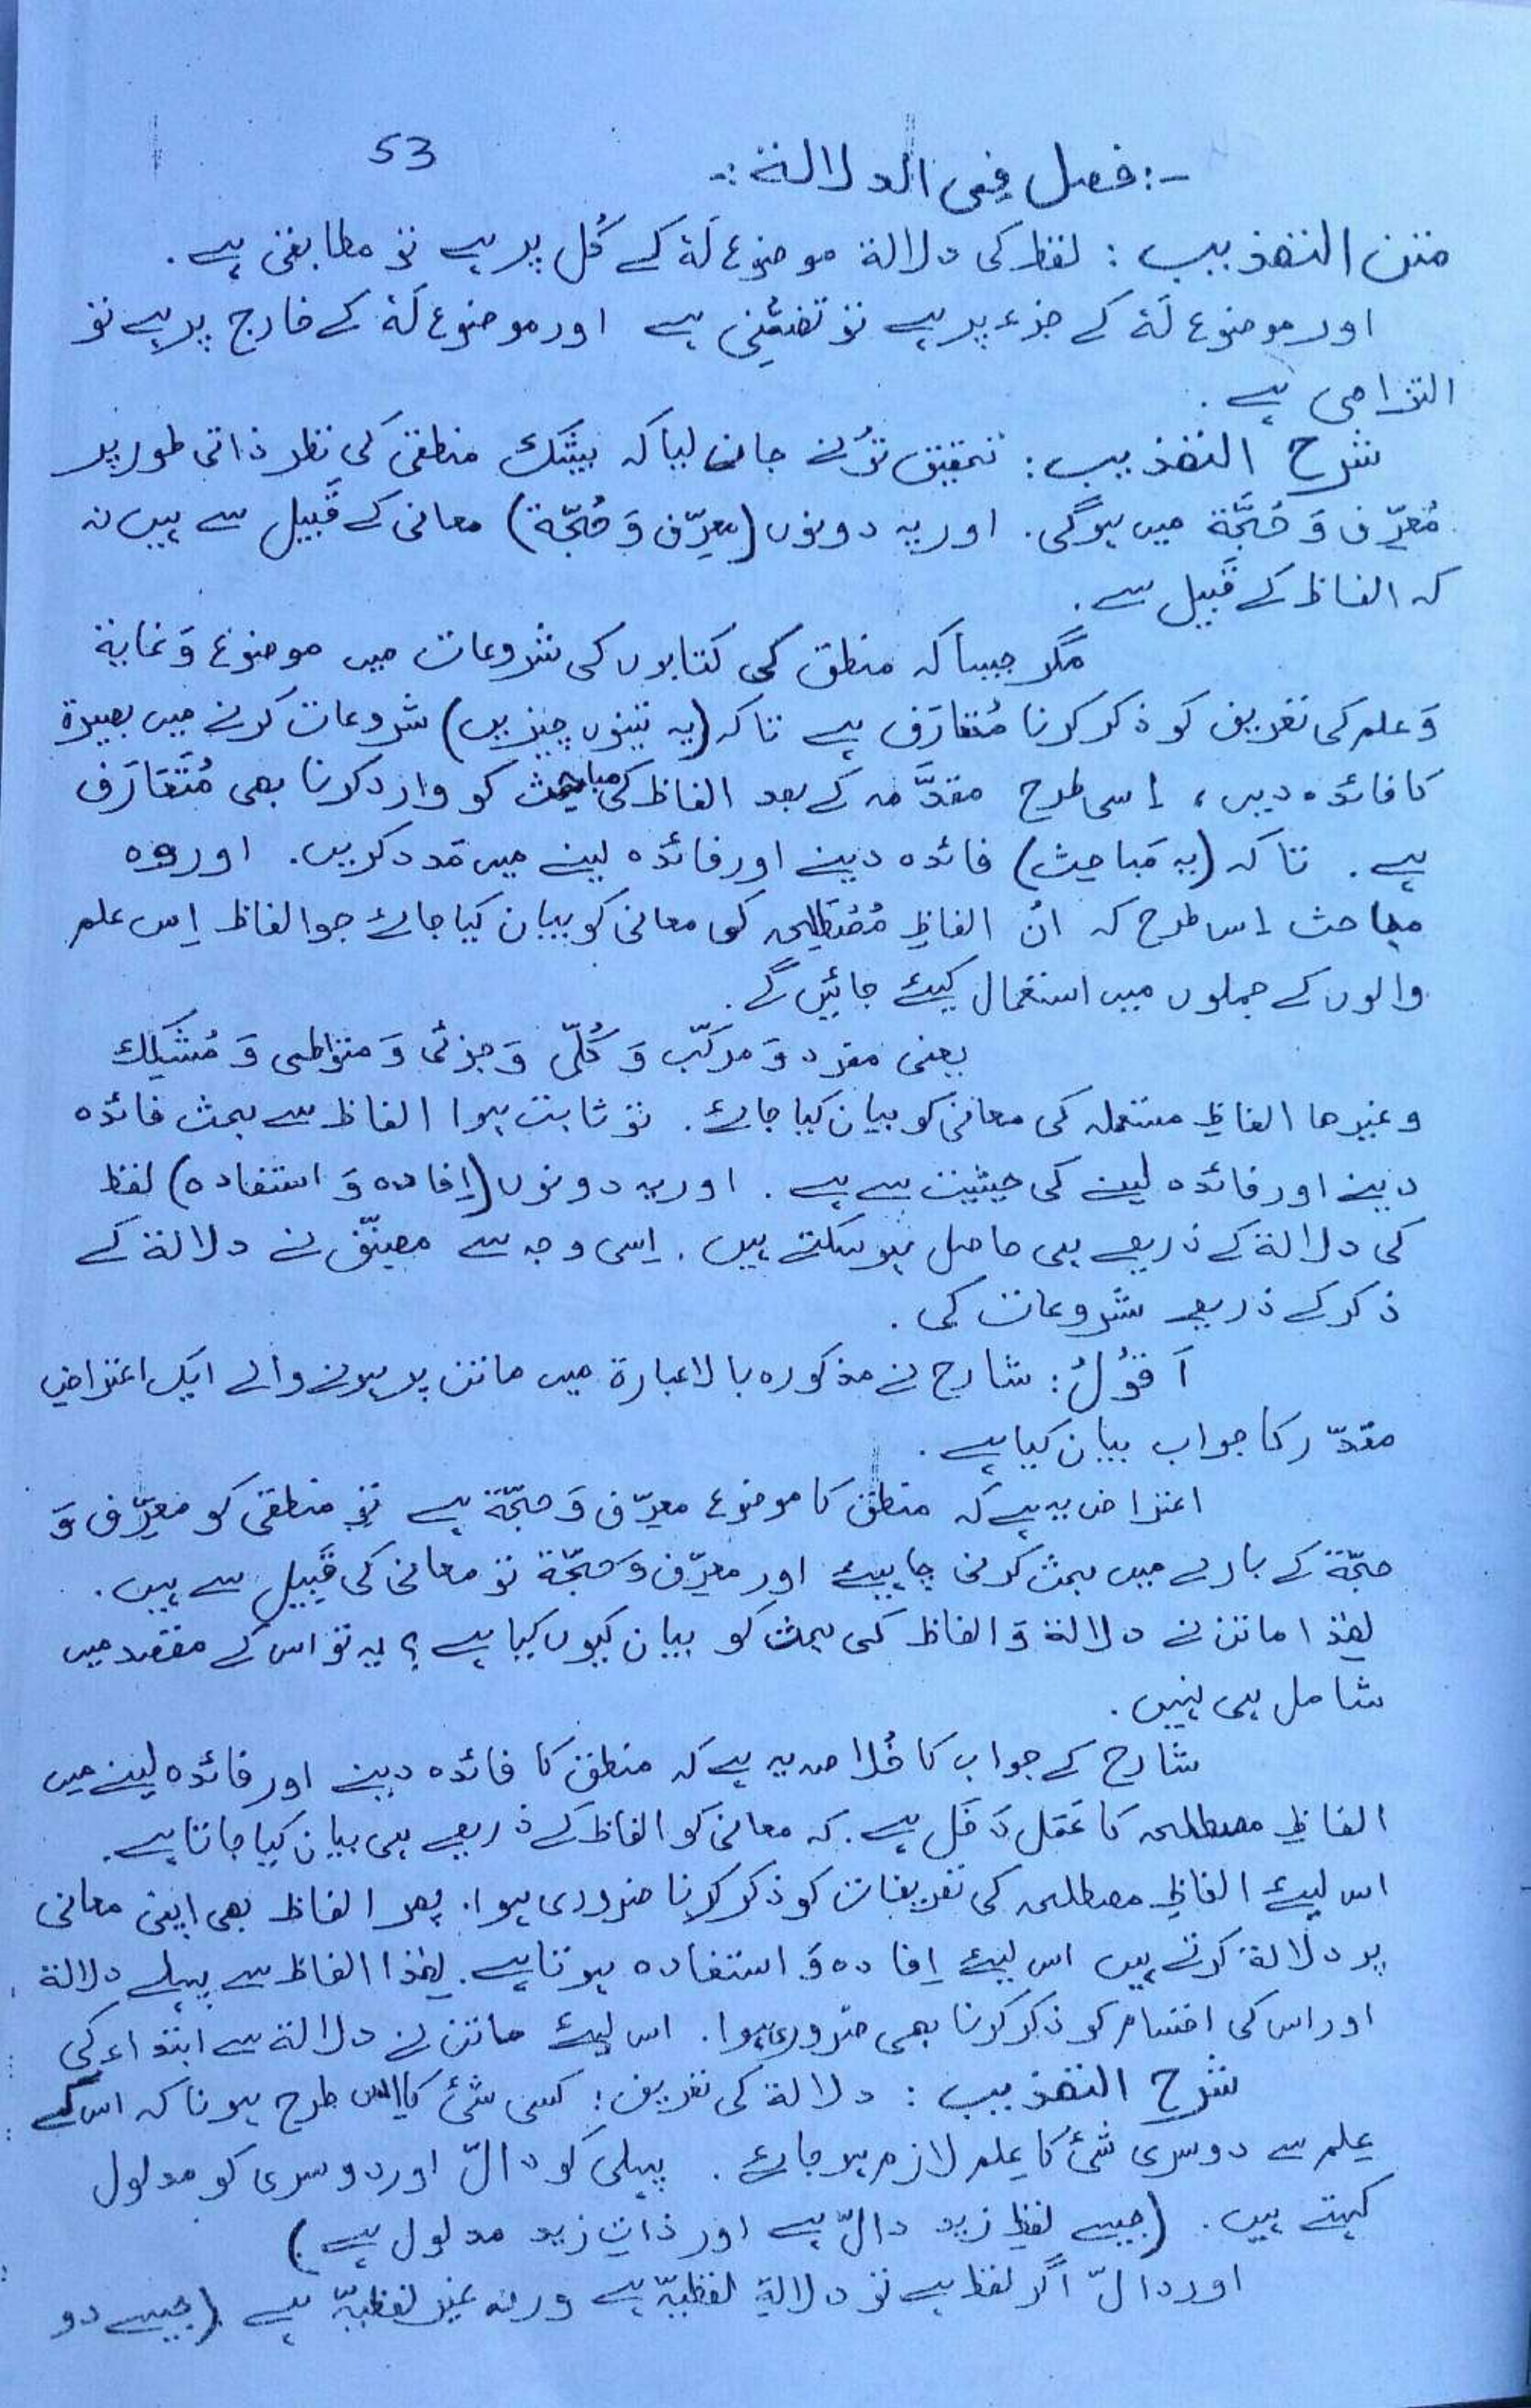 53
-: فصل فی الدلالة :-
متن التھذیب : لفظ کی دلالة موضوع لَهٗ کے کُل پر ہے تو مطابقی ہے .
اور موضوع لَهٗ کے جزء پر ہے تو تضمُّنِی ہے اور موضوع لَهٗ کے خارج پر ہے تو
التزامی ہے .
شرح التھذیب : تحقیق تُو نے جان لیا کہ بیشک منطقی کی نظر ذاتی طور پر
مُعَرِّف وَ حُجَّة میں ہوگی . اور یہ دونوں (معرِّف وَ حُجّة) معانی کے قَبِیل سے ہیں نہ
کہ الفاظ کے قَبِیل سے .
مگر جیسا کہ منطق کی کتابوں کی شروعات میں موضوع وَ غایة
وَ علم کی تعریف کو ذکر کرنا مُتعارَف ہے تاکہ (یہ تینوں چیزیں) شروعات کرنے میں بصیرة
کا فائدہ دیں ، اِسی طرح مقدَّمہ کے بعد الفاظ کی مباحث کو وارد کرنا بھی مُتَعَارَف
ہے . تاکہ (یہ مَباحِث) فائدہ دینے اور فائدہ لینے میں مَدد کریں . اور وہ
مباحث اِس طرح کہ اُن الفاظِ مُصْطَلِحہ کی معانی کو بیان کیا جائے جو الفاظ اِس علم
والوں کے جملوں میں استعمال کیئے جائیں گے .
یعنی مفرد وَ مرکّب وَ کُلّی وَ جزئی وَ متواطی وَ مُشَکِّک
وغیرھا الفاظِ مستعملہ کی معانی کو بیان کیا جائے . تو ثابت ہوا الفاظ سے بحث فائدہ
دینے اور فائدہ لینے کی حیثیت سے ہے . اور یہ دونوں (اِفادہ وَ استفادہ) لفظ
کی دلالة کے ذریعے ہی حاصل ہو سکتے ہیں . اِسی وجہ سے مصنِّف نے دلالة کے
ذکر کے ذریعے شروعات کی .
اَقُوْلُ : شارح نے مذکورہ بالا عبارة میں ماتن پر ہونے والے ایک اعتراضِ
مقدّر کا جواب بیان کیا ہے .
اعتراض یہ ہے کہ منطق کا موضوع معرِّف وَ حجّة ہے تو منطقی کو معرِّف وَ
حجّة کے بارے میں بحث کرنی چاہیئے اور معرِّف وَ حجّة تو معانی کی قَبِیل سے ہیں .
لھٰذا ماتن نے دلالة وَ الفاظ کی بحث کو بیان کیوں کیا ہے ؟ یہ تو اس کے مقصد میں
شامل ہی نہیں .
شارح کے جواب کا خُلاصہ یہ ہے کہ منطق کا فائدہ دینے اور فائدہ لینے میں
الفاظِ مصطلحہ کا عَمَل دَخَل ہے . کہ معانی کو الفاظ کے ذریعے ہی بیان کیا جاتا ہے .
اس لیئے الفاظِ مصطلحہ کی تعریفات کو ذکر کرنا ضروری ہوا . پھر الفاظ بھی اپنی معانی
پر دلالة کرتے ہیں اس لیئے اِفادہ وَ استفادہ ہوتا ہے . لھٰذا الفاظ سے پہلے دلالة
اور اس کی اقسام کو ذکر کرنا بھی ضروری ہوا . اس لیئے ماتن نے دلالة سے ابتداء کی
شرح التھذیب : دلالة کی تعریف : کسی شئ کا اس طرح ہونا کہ اس کے
عِلم سے دوسری شئ کا عِلم لازم ہو جائے . پہلی کو دالّ اور دوسری کو مدلول
کہتے ہیں . (جیسے لفظِ زید دالّ ہے اور ذاتِ زید مدلول ہے)
اور دالّ اگر لفظ ہے تو دلالةِ لفظیّہ ہے ورنہ غیرِ لفظیّہ ہے (جیسے دو